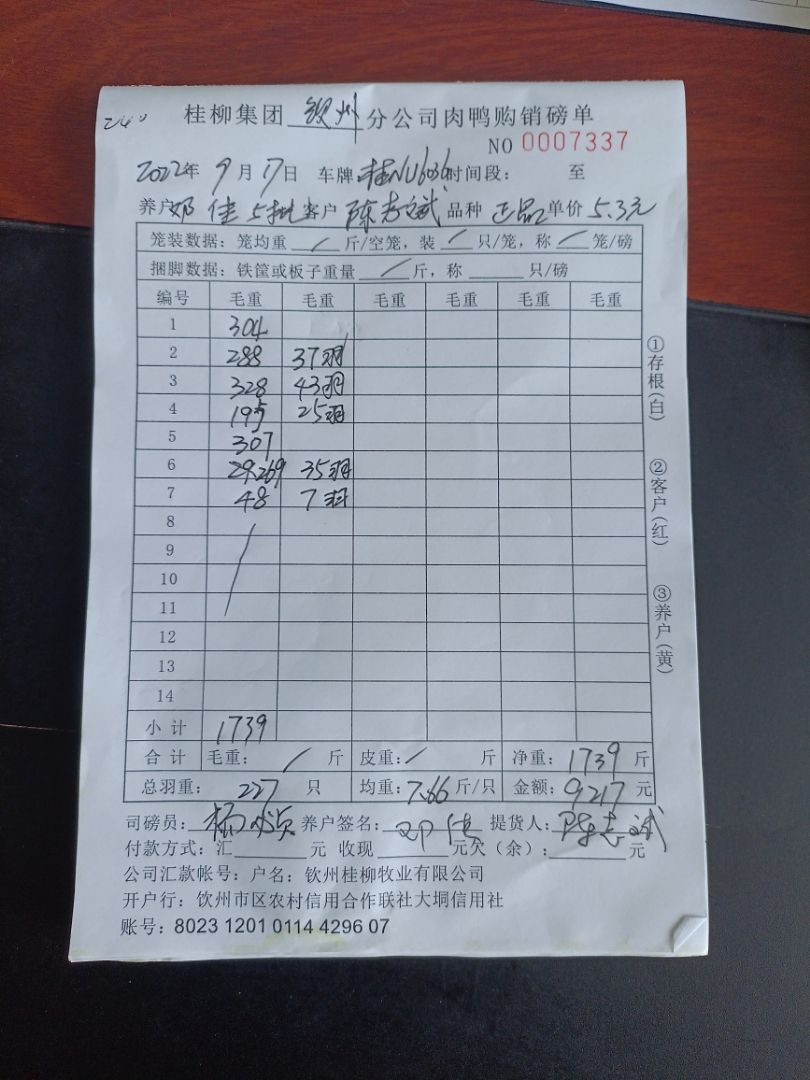 240
桂柳集团 钦州 分公司肉鸭购销磅单
NO 0007337
2022年 9月17日 车牌:桂NU636时间段: 至
养户 邓佳 5批 客户 陈志斌 品种 正品 单价 5.3元
笼装数据:笼均重 / 斤/空笼,装 / 只/笼,称 / 笼/磅
捆脚数据:铁筐或板子重量 / 斤,称 只/磅
编号 毛重 毛重 毛重 毛重 毛重 毛重
1 304
2 288 37羽
3 328 43羽
4 195 25羽
5 307
6 269 35羽
7 48 7羽
8
9
10
11
12
13
14
小计 1739
合计 毛重: / 斤 皮重: / 斤 净重: 1739 斤
总羽重: 227 只 均重: 7.66 斤/只 金额: 9217 元
司磅员: 养户签名: 邓佳 提货人: 陈志斌
付款方式:汇 元 收现 元欠(余): 元
公司汇款帐号:户名:钦州桂柳牧业有限公司
开户行:钦州市区农村信用合作联社大垌信用社
账号:8023 1201 0114 4296 07
①存根(白)
②客户(红)
③养户(黄)